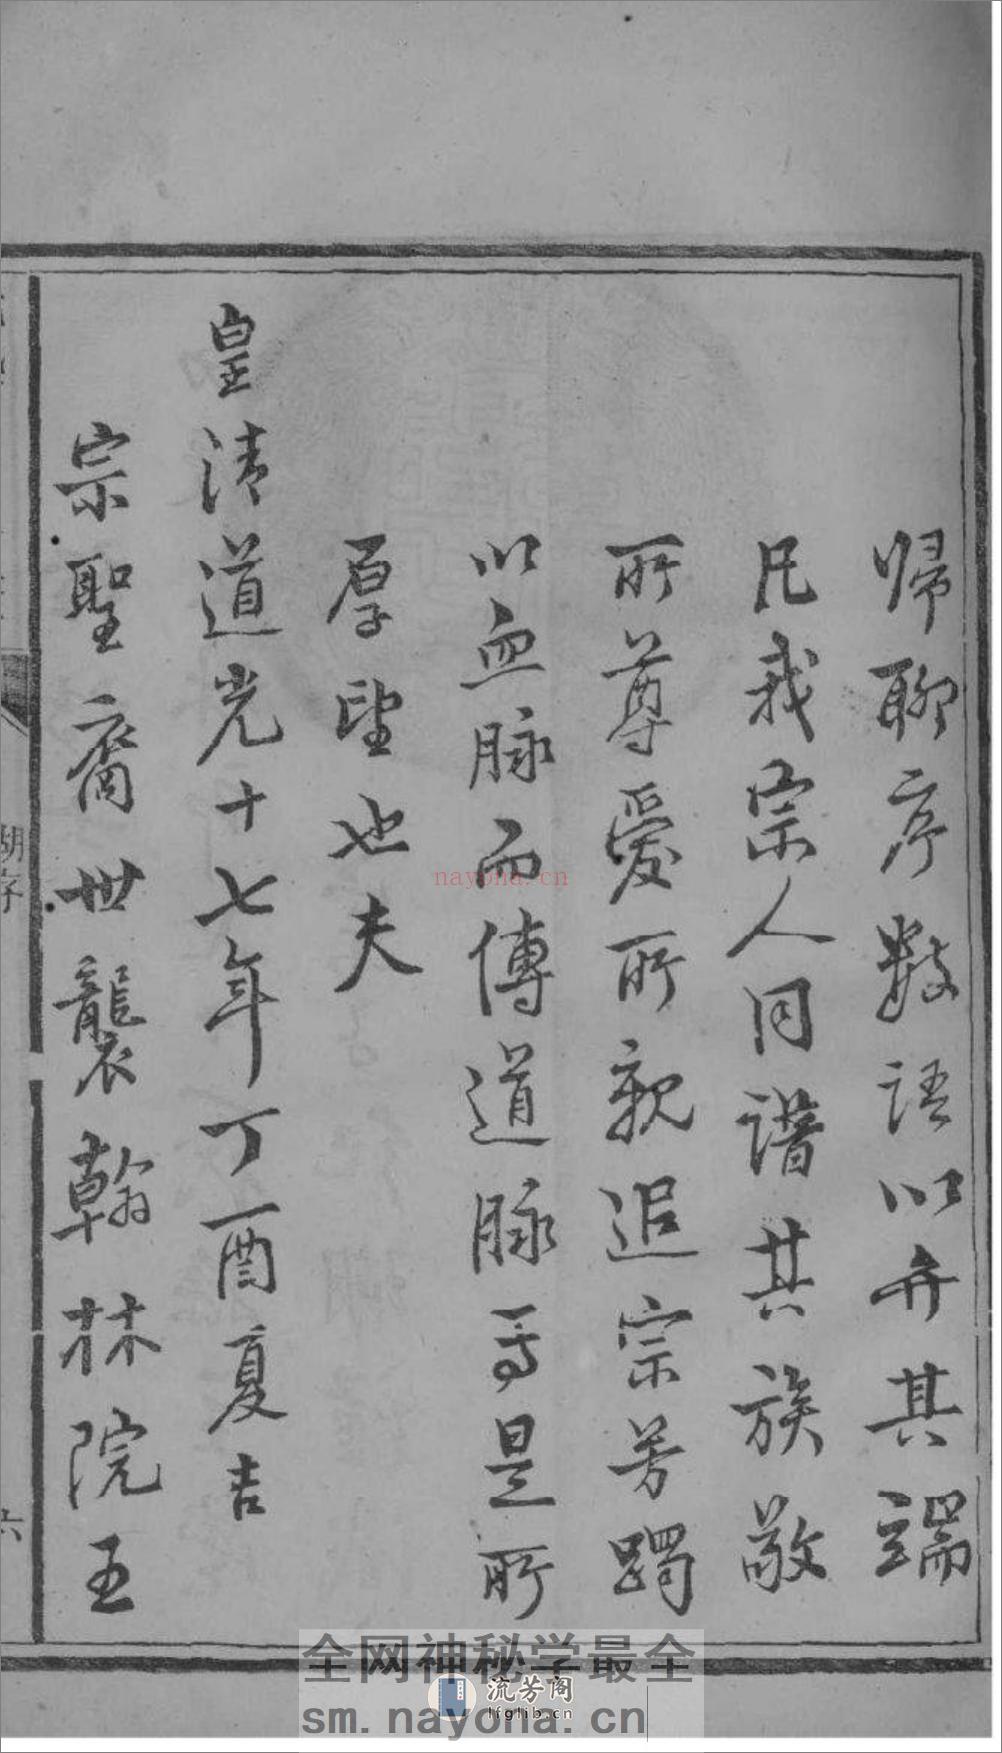 歸聊序數語以弁其端
凡我宗人同譜其族敬
所尊愛所親追宗芳躅
以血脉而傳道脉焉是所
厚望也夫
皇清道光十七年丁酉夏吉
宗聖裔世襲翰林院五
六
nayona.cn
全网神秘学最全
流芳阁
lfglib.cn
sm.nayona.cn